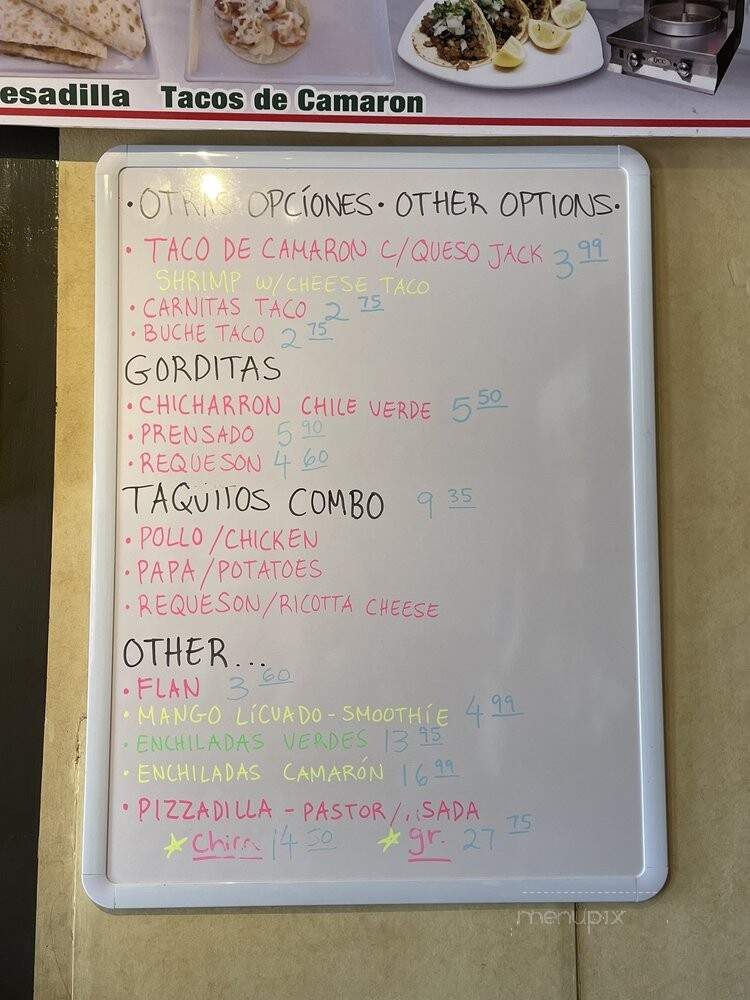 esadilla Tacos de Camaron
· OTRAS OPCÍONES · OTHER OPTIONS ·
· TACO DE CAMARON C/QUESO JACK 3 99
SHRIMP W/CHEESE TACO
· CARNITAS TACO 2 75
· BUCHE TACO 2 75
GORDITAS
· CHICHARRON CHILE VERDE 5 50
· PRENSADO 5 90
· REQUESON 4 60
TAQUITOS COMBO 9 35
· POLLO/CHICKEN
· PAPA/POTATOES
· REQUESON/RICOTTA CHEESE
OTHER...
· FLAN 3 60
· MANGO LÍCUADO - SMOOTHÍE 4 99
· ENCHILADAS VERDES 13 95
· ENCHILADAS CAMARÓN 16 99
· PIZZADILLA - PASTOR/ SADA
14 50 gr. 27 75
menupix